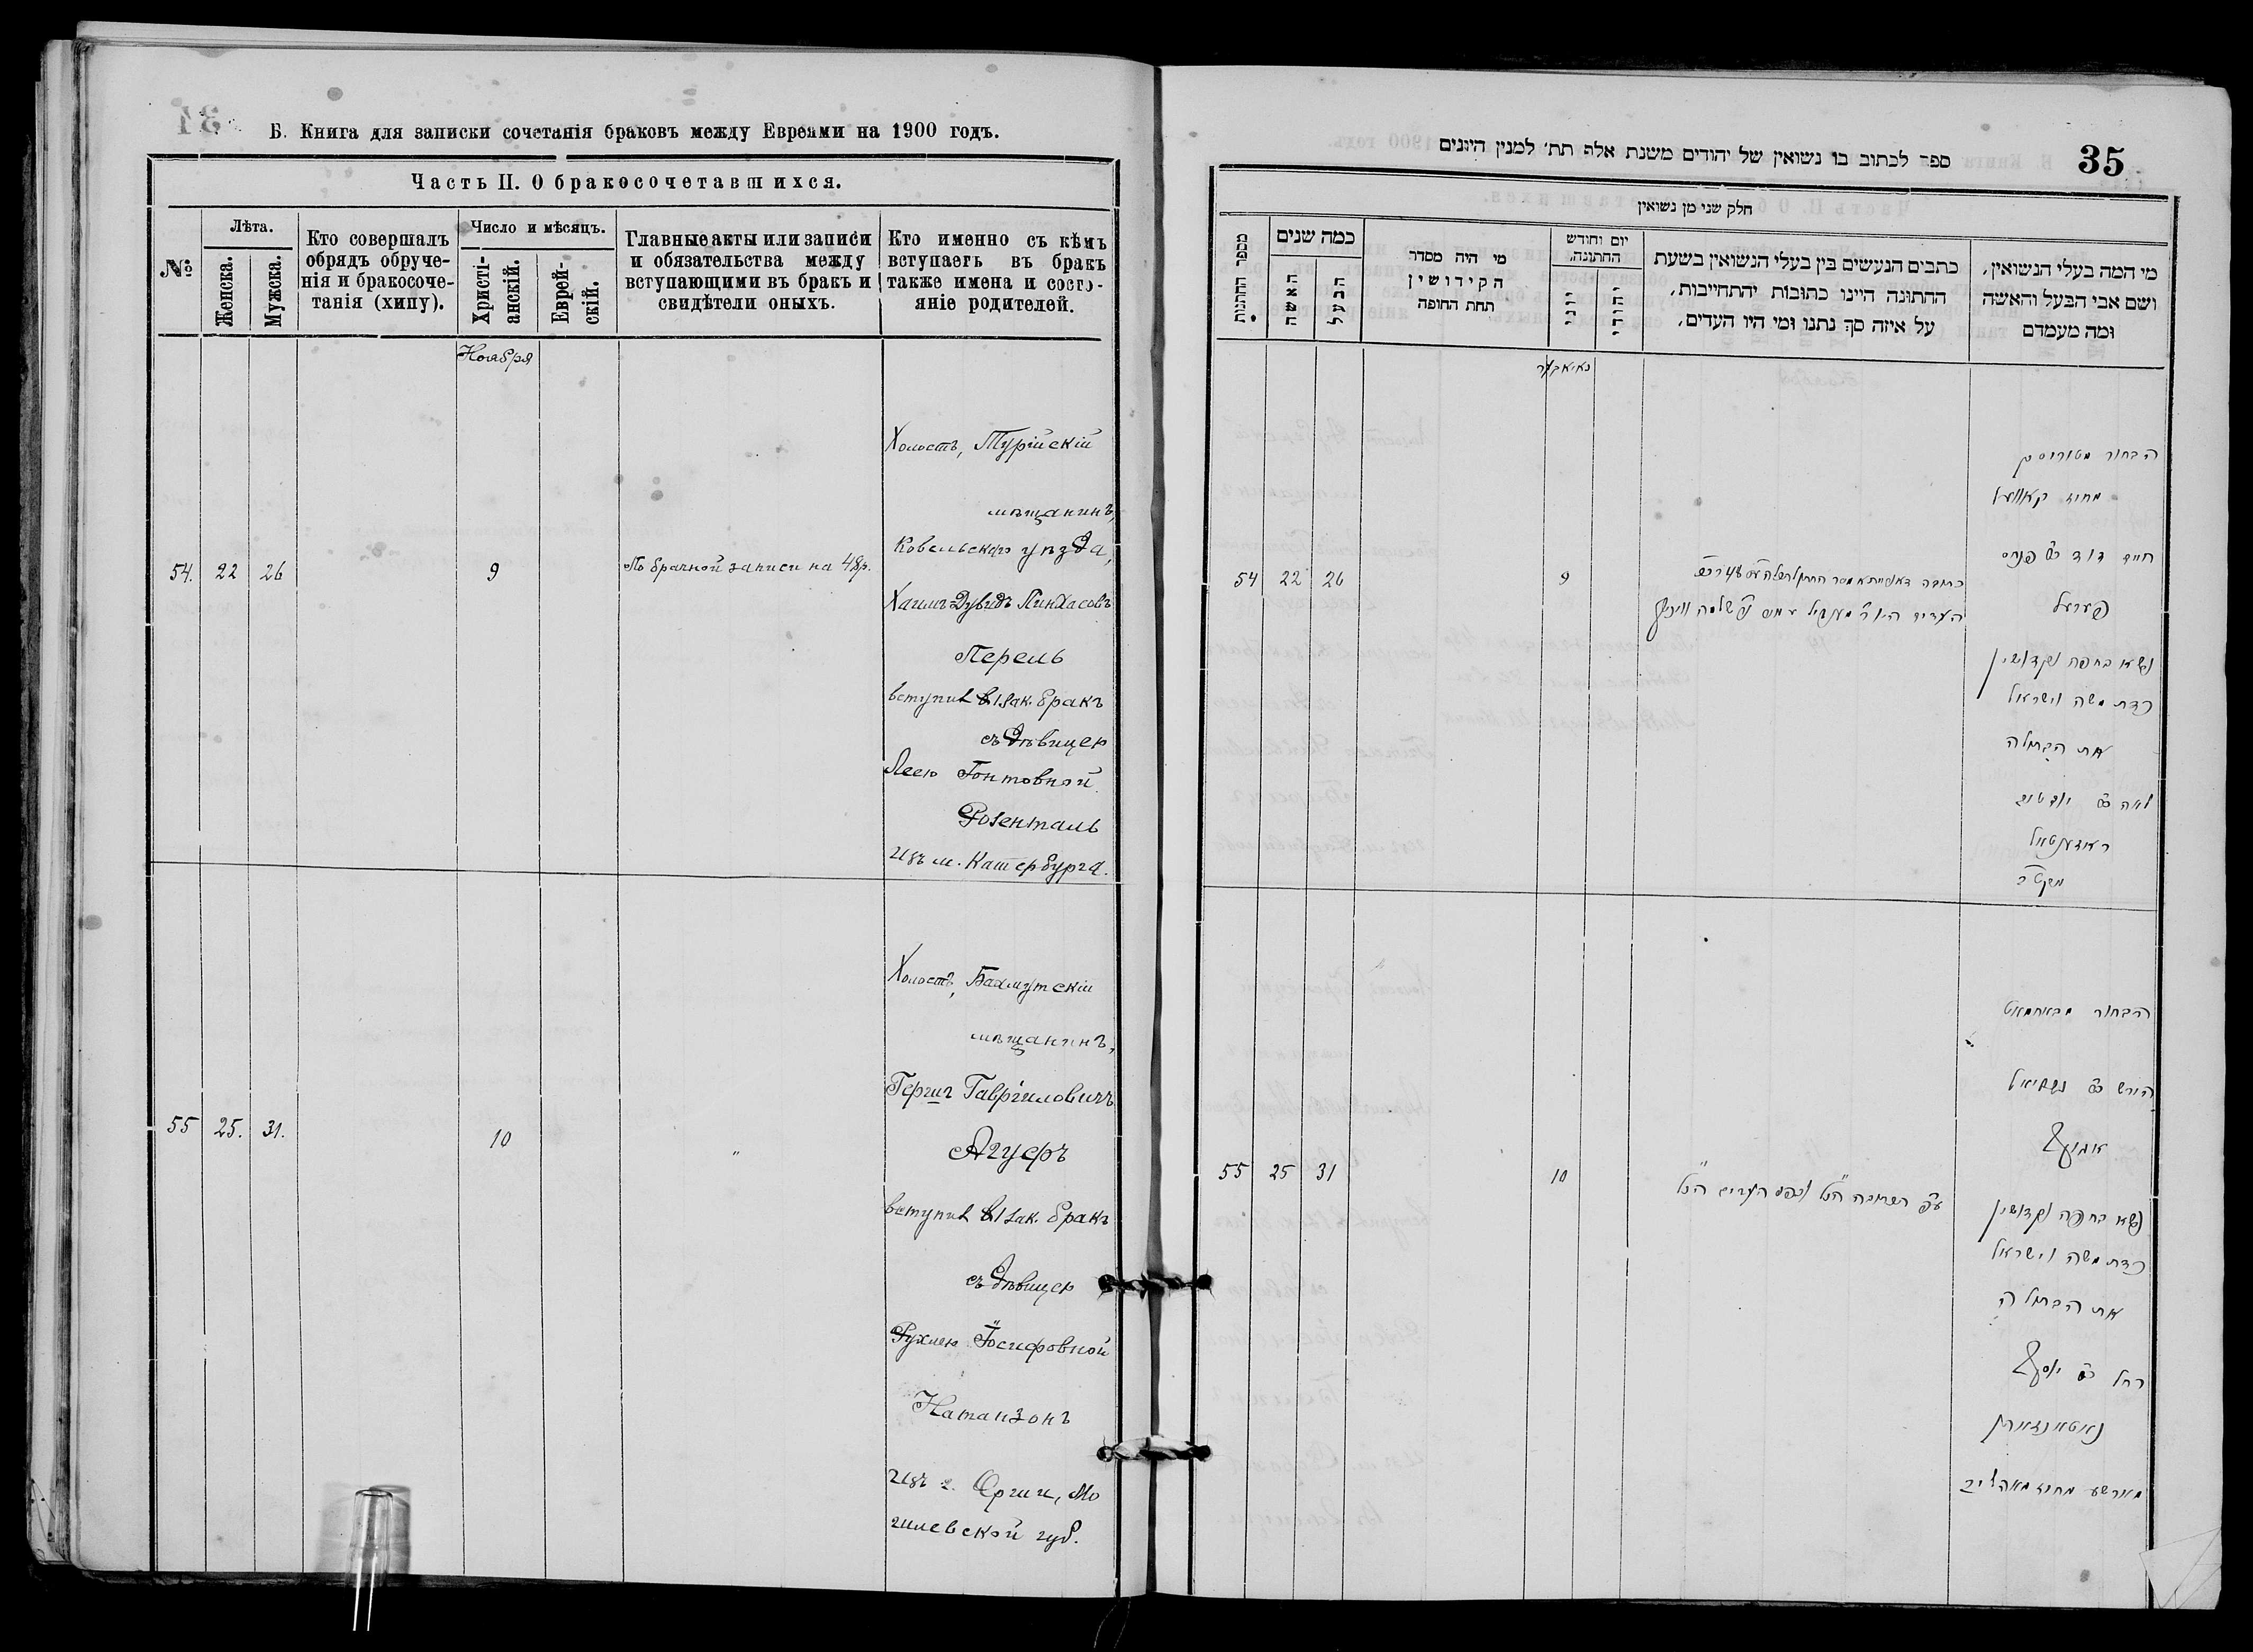 Б. Книга для записки сочетанія браковъ между Евреями на 1900 годъ.
Часть II. О бракосочетавшихся.
№
Лѣта.
Женска.
Мужска.
Кто совершалъ
обрядъ обруче-
нія и бракосоче-
танія (хипу).
Число и мѣсяцъ.
Христі-
анскій.
Еврей-
скій.
Главные акты или записи
и обязательства между
вступающими въ бракъ и
свидѣтели оныхъ.
Кто именно съ кѣмъ
вступаетъ въ бракъ
также имена и состо-
яніе родителей.
Ноября
54. 22 26
9
По брачной записи на 48р.
Холостъ, Турійскій
мѣщанинъ,
Ковельскаго уѣзда,
Хаимъ-Дувидъ Пинхасовъ
Перель
вступил въ 1 зак. бракъ
съ дѣвицею
Леею Гонтовной
Розенталь
изъ м. Катербурга.
55 25. 31.
10
"
Холостъ, Бахмутскій
мѣщанинъ,
Герши Гавріиловичъ
Агуфъ
вступил въ 1 зак. бракъ
съ дѣвицею
Рухлею Іосифовной
Натанзонъ
изъ г. Орши, Мо
гилевской губ.
35
ספר לכתוב בו נשואין של יהודים משנת אלף תת׳ למנין היונים
חלק שני מן נשואין
מספר החתונות
כמה שנים
האשה
הבעל
מי היה מסדר
הקידושין
תחת החופה
יום וחודש
החתונה,
יווני
יהודי
כתבים הנעשים בין בעלי הנשואין בשעת
החתונה היינו כתובות יהתחייבות,
על איזה סך נתנו ומי היו העדים,
מי המה בעלי הנשואין,
ושם אבי הבעל והאשה
ומה מעמדם
נאיאבער
54 22 26
9
הבחור מטוריסק
מחוז קאוועל
חיים דוד פנחס
פערעל
נשא בחפה וקדושין
כדת משה וישראל
את הבתולה
לאה
ראזענטאל
55 25 31
10
ע״פ הכתובה הנ״ל ובפני העדים הנ״ל
הבחור מבאחמאט
הירש
אגוף
נשא בחפה וקדושין
כדת משה וישראל
את הבתולה
רחל יוסף
נאטאנזאהן
מארשע מחוז מאהליב